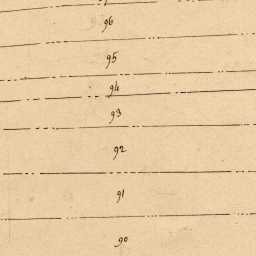 96
95
94
93
92
91
90